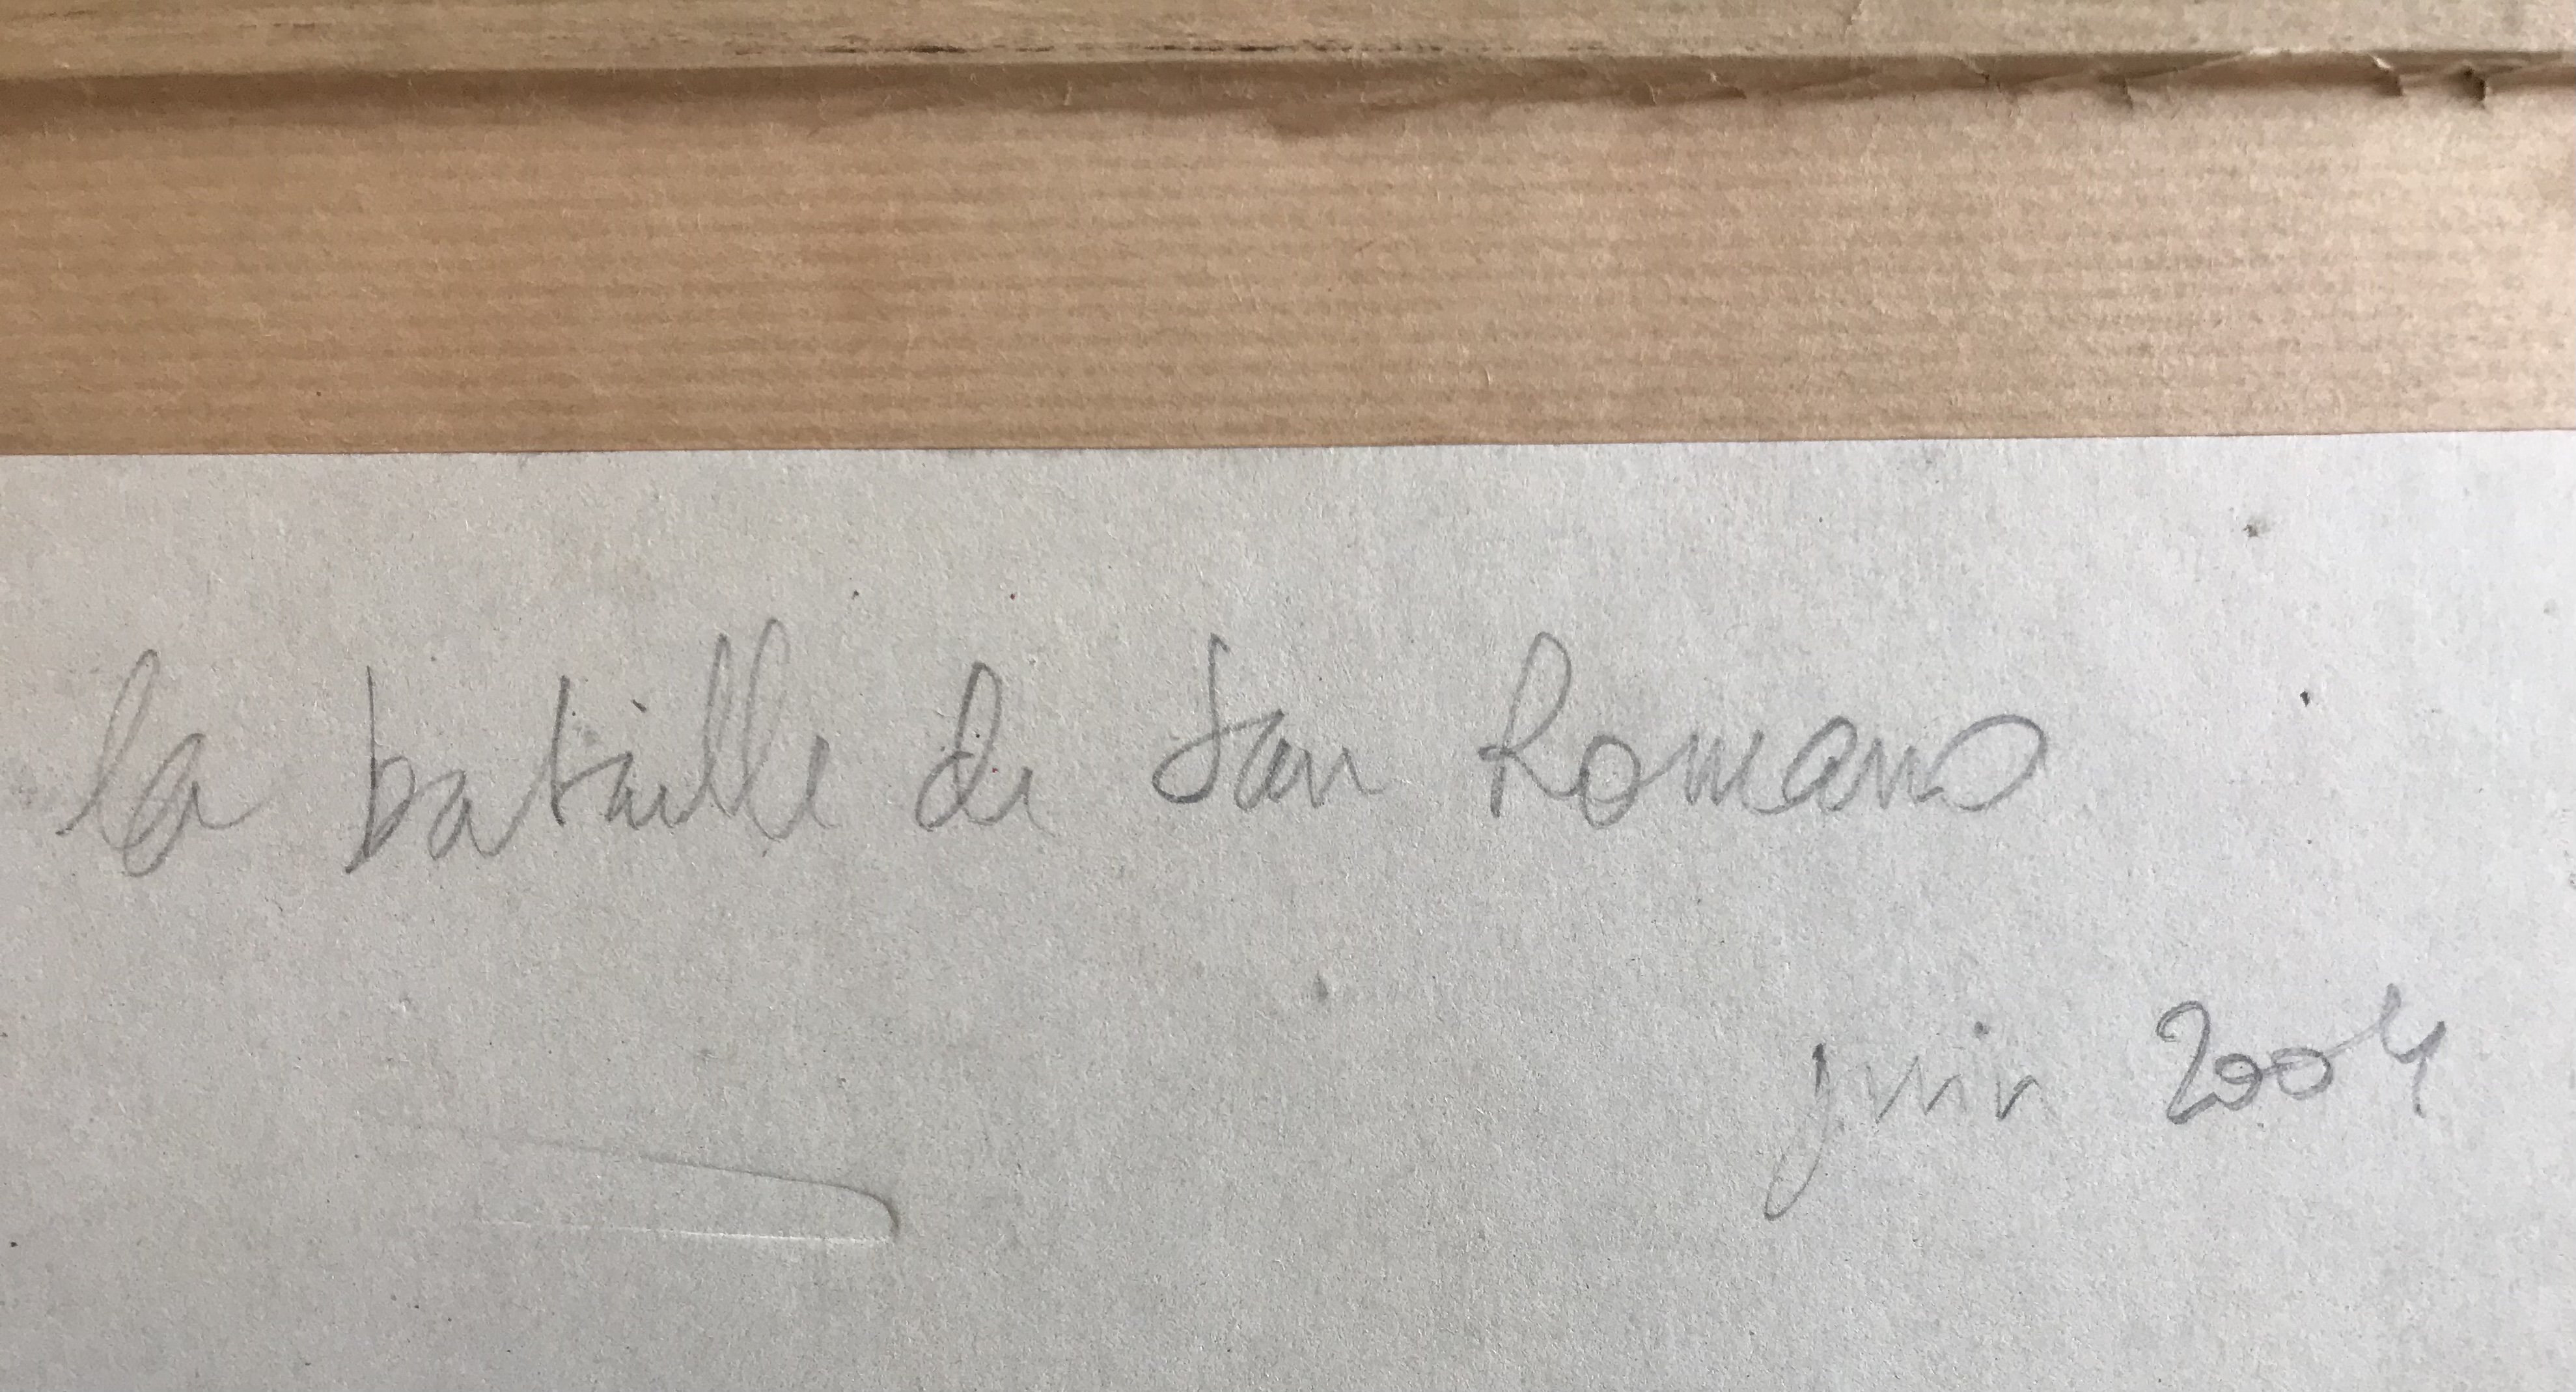 la bataille de San Romano
juin 2004